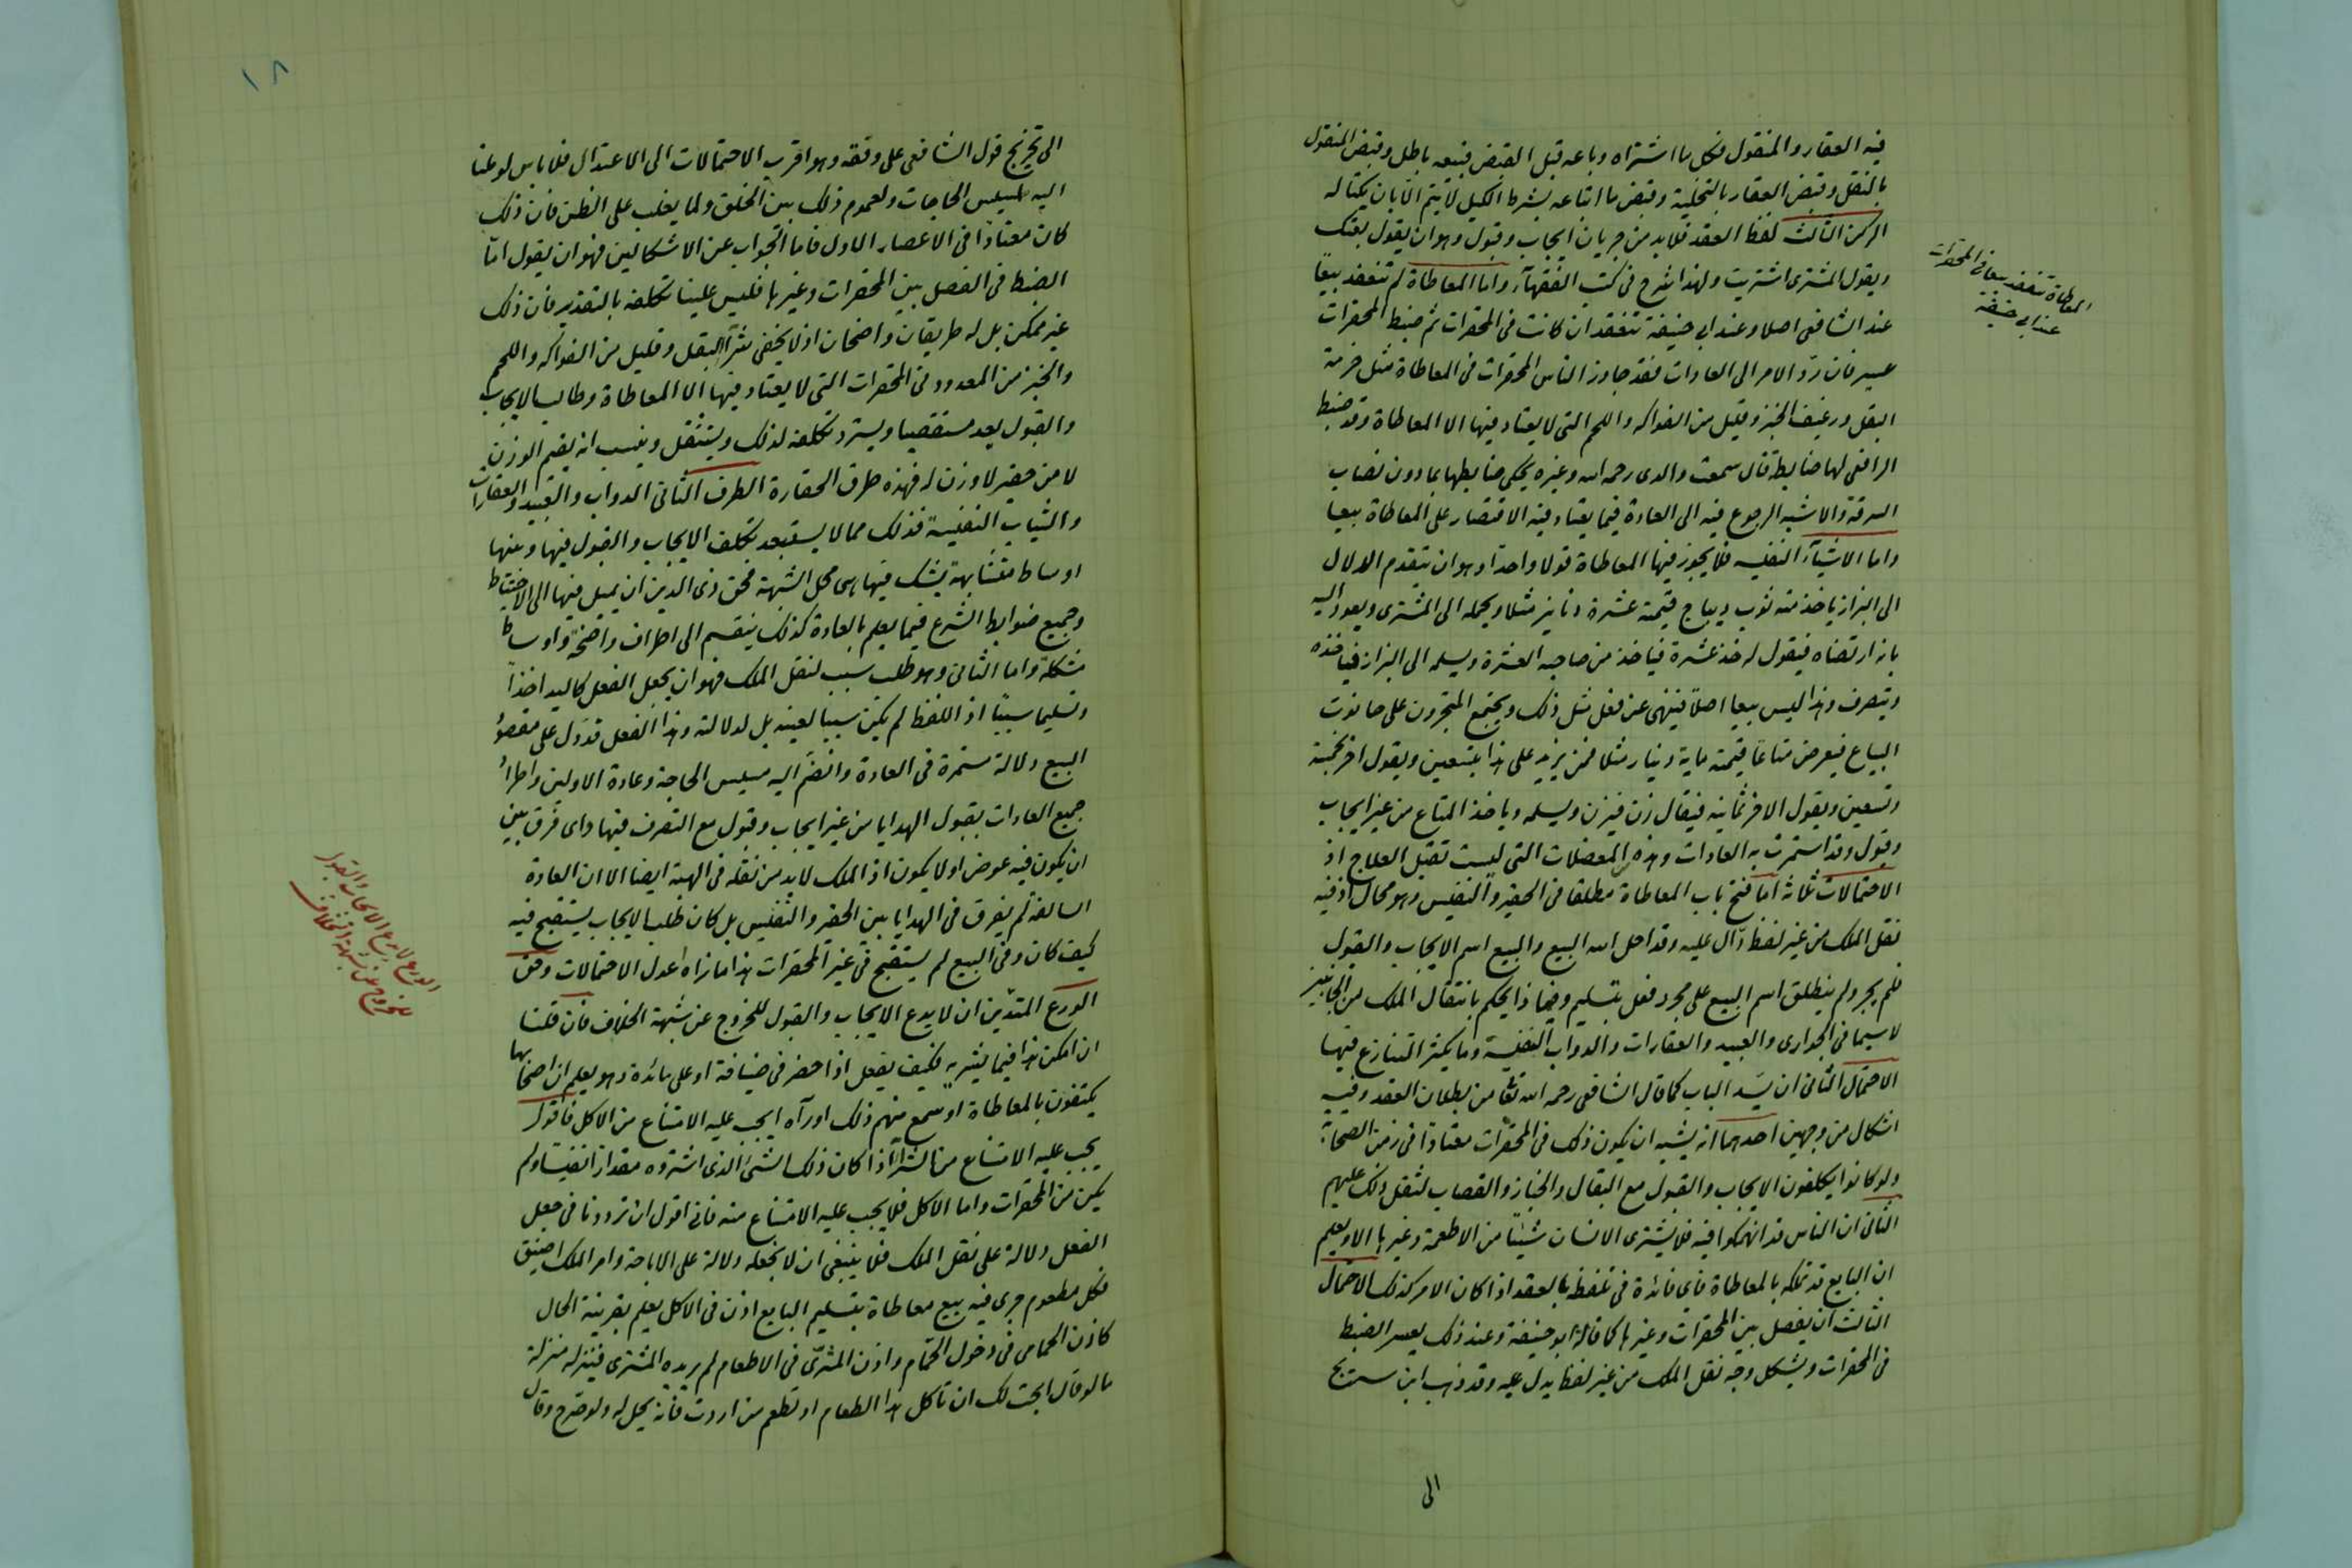 فيه العقار والمنقول فكل ما اشتراه وباعه قبل القبض فبيعه باطل وقبض المنقول
بالنقل وقبض العقار بالتخلية وقبض ما ابتاعه بشرط الكيل لا يتم الا بان يكتاله
الركن الثالث لفظ العقد فلا بد من جريان ايجاب وقبول وهو ان يقول بعتك
ويقول المشترى اشتريت ولهذا شرح فى كتب الفقهآء واما المعاطاة لم تنعقد بيعًا
عند الشافعى اصلا وعند ابى حنيفة تنعقد ان كانت فى المحقرات ثم ضبط المحقرات
عسير فان ردّ الامر الى العادات فقد جاوز الناس المحقرات فى المعاطاة مثل حزمة
البقل ورغيف الخبز وقليل من الفواكه واللحم التى لا يعتاد فيها الا المعاطاة وقد ضبط
الرافعى لها ضابطة قال سمعت والدى رحمه الله وغيره يحكى ضابطها بما دون نصاب
السرقة والاشبه الرجوع فيه الى العادة فيما يعتاد فيه الاقتصار على المعاطاة بيعا
واما الاشيآء النفيسه فلا يجوز فيها المعاطاة قولا واحدا وهو ان يتقدم الدلال
الى البزاز ياخذ منه ثوب ديباج قيمته عشرة دنانير مثلا ويحمله الى المشترى ويعود اليه
بانه ارتضاه فيقول له خذ عشرة فياخذ من صاحبه العشرة ويسلمه الى البزاز فياخذه
ويتصرف وهذا ليس بيعا اصلا فينهى عن فعل مثل ذلك ويجتمع المتجرون على حانوت
البياع فيعرض متاعًا قيمته ماية دينار مثلا فمن يزيد على هذا بتسعين ويقول اخر بخمسة
وتسعين ويقول الاخر بمأية فيقال زن فيزن ويسلمه وياخذ المتاع من غير ايجاب
وقبول وقد استمرت به العادات وهذه المعضلات التى ليست تقبل العلاج اذ
الاحتمالات ثلاثة اما فتح باب المعاطاة مطلقا فى الحقير والنفيس وهو محال اذ فيه
نقل الملك من غير لفظ دّال عليه وقد احل الله البيع والبيع اسم الايجاب والقبول
فلم يجر ولم ينطلق اسم البيع على مجرد فعل بتسليم وبماذا يحكم بانتقال الملك من الجانبين
لا سيما فى الجوارى والعبيد والعقارات والدواب النفيسة وما يكثر التنازع فيها
الاحتمال الثانى ان يَسُد الباب كما قال الشافعى رحمه الله تعا من بطلان العقد وفيه
اشكال من وجهين احدهما انه يشبه ان يكون ذلك فى المحقرات معتادا فى زمن الصحابة
ولو كانوا يكلفون الايجاب والقبول مع البقال والخباز والقصاب لثقل ذلك عليهم
الثانى ان الناس قد انهمكوا فيه فلا يشترى الانسان شيئا من الاطعمة وغيرها الا ويعلم
ان البايع قد تملكه بالمعاطاة فاى فائدة فى تلفظه بالعقد اذا كان الامر كذلك الاحتمال
الثالث ان يفصل بين المحقرات وغيرها كما قاله ابو حنيفة وعند ذلك يعسر الضبط
فى المحقرات ويشكل وجه نقل الملك من غير لفظ يدل عليه وقد ذهب ابن سريج
الى
المعاطاة تنعقد بيعا فى المحقرات
عند ابى حنيفة
١٨
الى تخريج قول الشافعى على وفقه وهو اقرب الاحتمالات الى الاعتدال فلا باس لو ملنا
اليه لمسيس الحاجات ولعموم ذلك بين الخلق ولما يغلب على الظن فان ذلك
كان معتادًا فى الاعصار الاول فاما الجواب عن الاشكالين فهو ان يقول امّا
الضبط فى الفصل بين المحقرات وغيرها فليس علينا تكلفه بالتقدير فان ذلك
غير ممكن بل له طريقان واضحان اذ لا يخفى شرآء البقل وقليل من الفواكه واللحم
والخبز من المعدود فى المحقرات التى لا يعتاد فيها الا المعاطاة وطالب الايجاب
والقبول يعد مستقصيا ويستبرد تكلفه لذلك ويستثقل وينسب انه يقيم الوزن
لا من حقير لا وزن له فهذه طرف الحقارة الطرف الثانى الدواب والعبيد والعقارات
والثياب النفيسة فذلك مما لا يستبعد تكلف الايجاب والقبول فيها وبينها
اوساط متشابهة يشك فيها هى محل الشبهة فحق ذى الدين ان يميل فيها الى الاحتياط
وجميع ضوابط الشرع فيما يعلم بالعادة كذلك ينقسم الى اطراف واضحة واوساط
مشكلة واما الثانى وهو طلب سبب لنقل الملك فهو ان يجعل الفعل كاليد اخذًا
وتسليما سببًا اذ اللفظ لم يكن سببا لعينه بل لدلالته وهذا الفعل قد دل على مقصود
البيع دلالة مستمرة فى العادة وانضم اليه مسيس الحاجة وعادة الاولين واطراد
جميع العادات بقبول الهدايا من غير ايجاب وقبول مع التصرف فيها واى فرق بين
ان يكون فيه عوض او لا يكون اذ الملك لا بد من نقله فى الهبة ايضا الا ان العادة
السالفة لم يفرق فى الهدايا بين الحقير والنفيس بل كان طلب الايجاب يستقبح فيه
كيف كان وفى البيع لم يستقبح فى غير المحقرات هذا ما نراه اعدل الاحتمالات وحق
الورع المتدّين ان لا يدع الايجاب والقبول للخروج عن شبهة الخلاف فان قلت
ان امكن هذا فيما يشتريه فكيف يفعل اذا حضر فى ضيافة او على مائدة وهو يعلم ان اصحابها
يكتفون بالمعاطاة او سمع منهم ذلك او رآه ايجب عليه الامتناع من الاكل فاقول
يجب عليه الامتناع من الشرآء اذا كان ذلك الشىء الذى اشتروه مقدارا نفيسا ولم
يكن من المحقرات واما الاكل فلا يجب عليه الامتناع منه فانى اقول ان ترددنا فى جعل
الفعل دلالة على نقل الملك فلا ينبغى ان لا نجعله دلالة على الاباحة وامر الملك اضيق
فكل مطعوم جرى فيه بيع معاطاة بتسليم البايع اذن فى الاكل يعلم بقرينة الحال
كاذن الحمامى فى دخول الحمّام واذن المشترى فى الاطعام لم يريده المشترى فينزله منزلة
ما لو قال ابحت لك ان تأكل هذا الطعام او تطعم من اردت فانه يحل له ولو صرح وقال
الورع لا يدع الايجاب والقبول
للخروج عن شبهة الخلاف